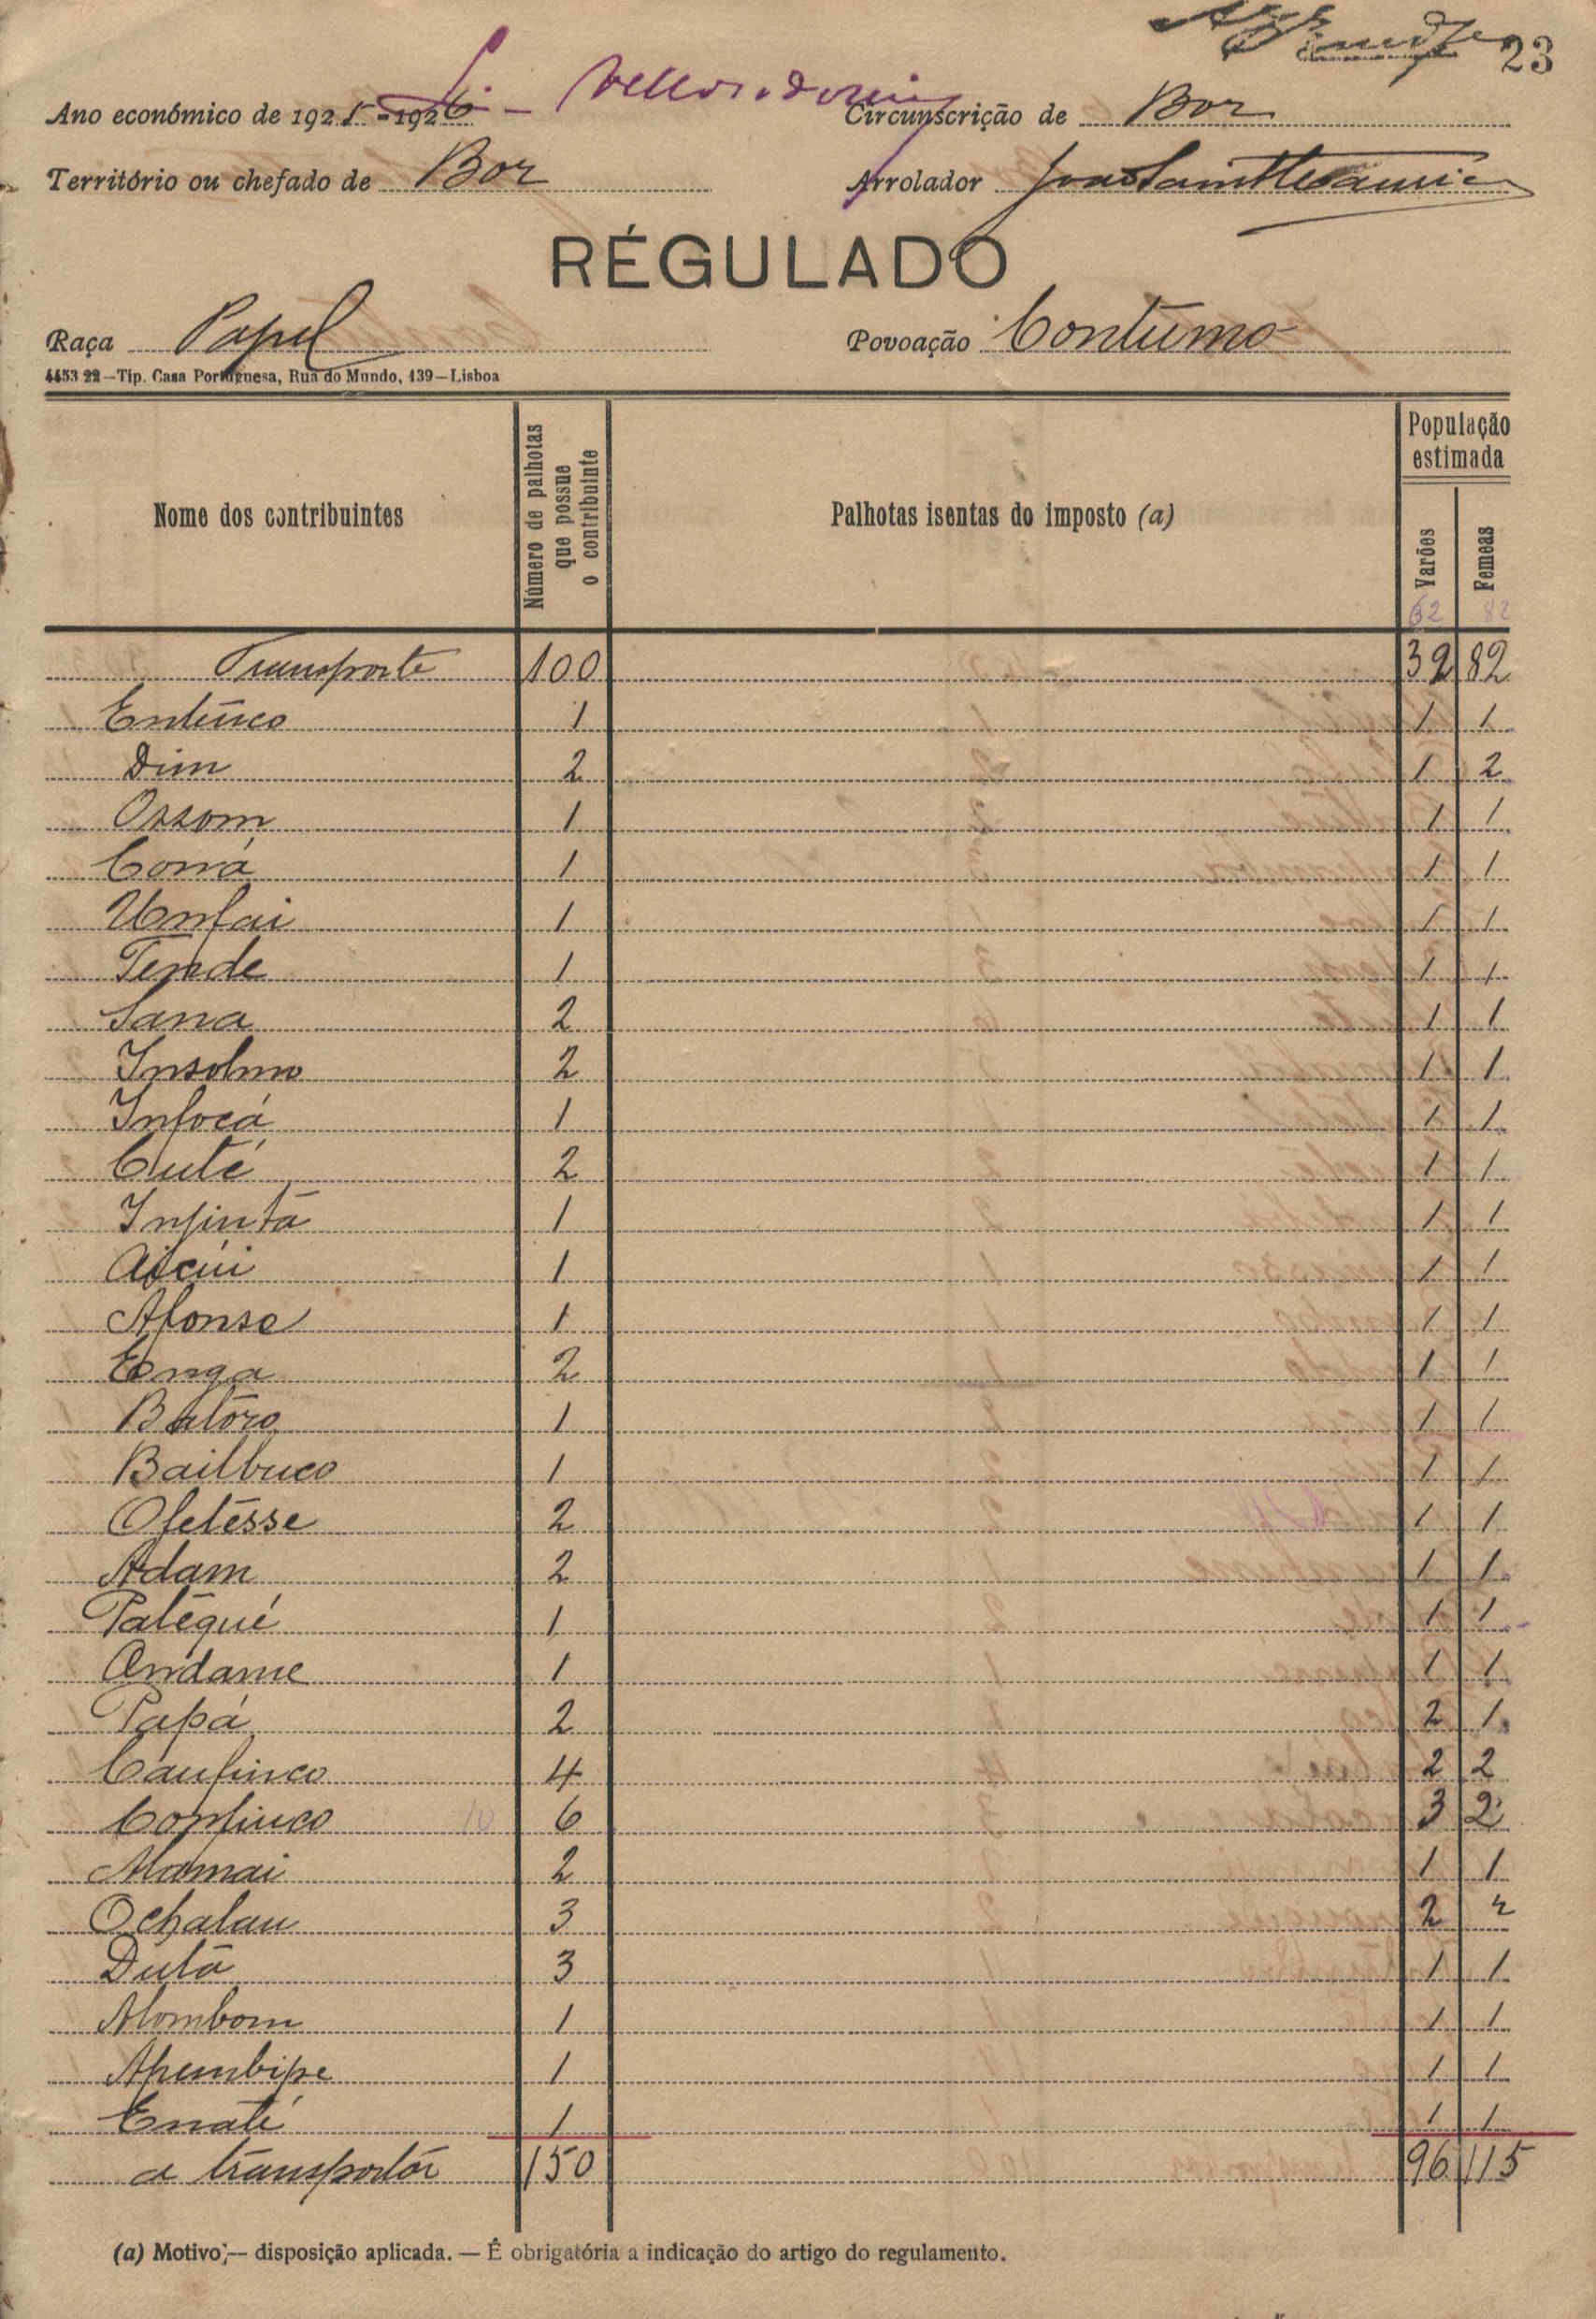 23
Ano económico de 1925-1926 Circunscrição de Bor
Território ou chefado de Bor Arrolador
RÉGULADO
Raça Papel Povoação Contumo
4453 22—Tip. Casa Portuguesa, Rua do Mundo, 139—Lisboa
Nome dos contribuintes
Número de palhotas que possue o contribuinte
Palhotas isentas do imposto (a)
População estimada
Varões
Femeas
62 82
Transporte 100 32 82
Entuco 1 1 1
Dim 2 1 2
Ossom 1 1 1
Corrá 1 1 1
Unfai 1 1 1
Tende 1 1 1
Sana 2 1 1
Insolmo 2 1 1
Infocá 1 1 1
Cuté 2 1 1
Infintá 1 1 1
1 1 1
Afonso 1 1 1
Enga 2 1 1
Batoro 1 1 1
Bailbuco 1 1 1
Ofetésse 2 1 1
Adam 2 1 1
Patéqué 1 1 1
Andame 1 1 1
Papá 2 2 1
Caufinco 4 2 2
Confinco 10 6 3 2
Mamai 2 1 1
Ochalau 3 2 2
Dutá 3 1 1
Mombom 1 1 1
Apumbipe 1 1 1
Enaté 1 1 1
a transportar 150 96 115
(a) Motivo;— disposição aplicada. — É obrigatória a indicação do artigo do regulamento.